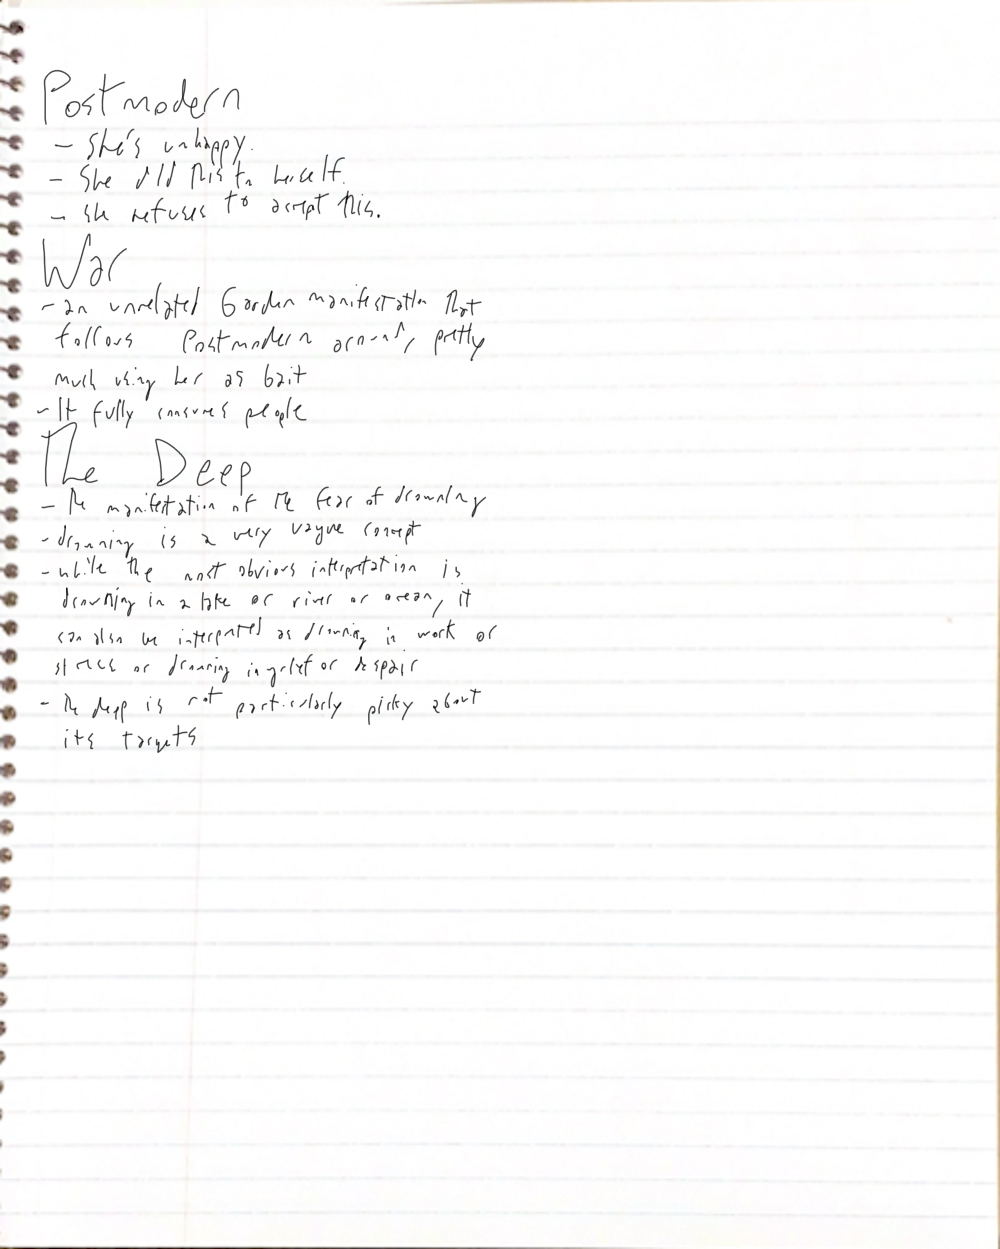 Postmodern
- She's unhappy.
- She did this to herself.
- she refuses to accept this.
War
- an unrelated Garden manifestation that
follows Postmodern around, pretty
much using her as bait
- It fully consumes people
The Deep
- the manifestation of the fear of drowning
- drowning is a very vague concept
- while the most obvious interpretation is
drowning in a lake or river or ocean, it
can also be interpreted as drowning in work or
stress or drowning in grief or despair
- the deep is not particularly picky about
its targets